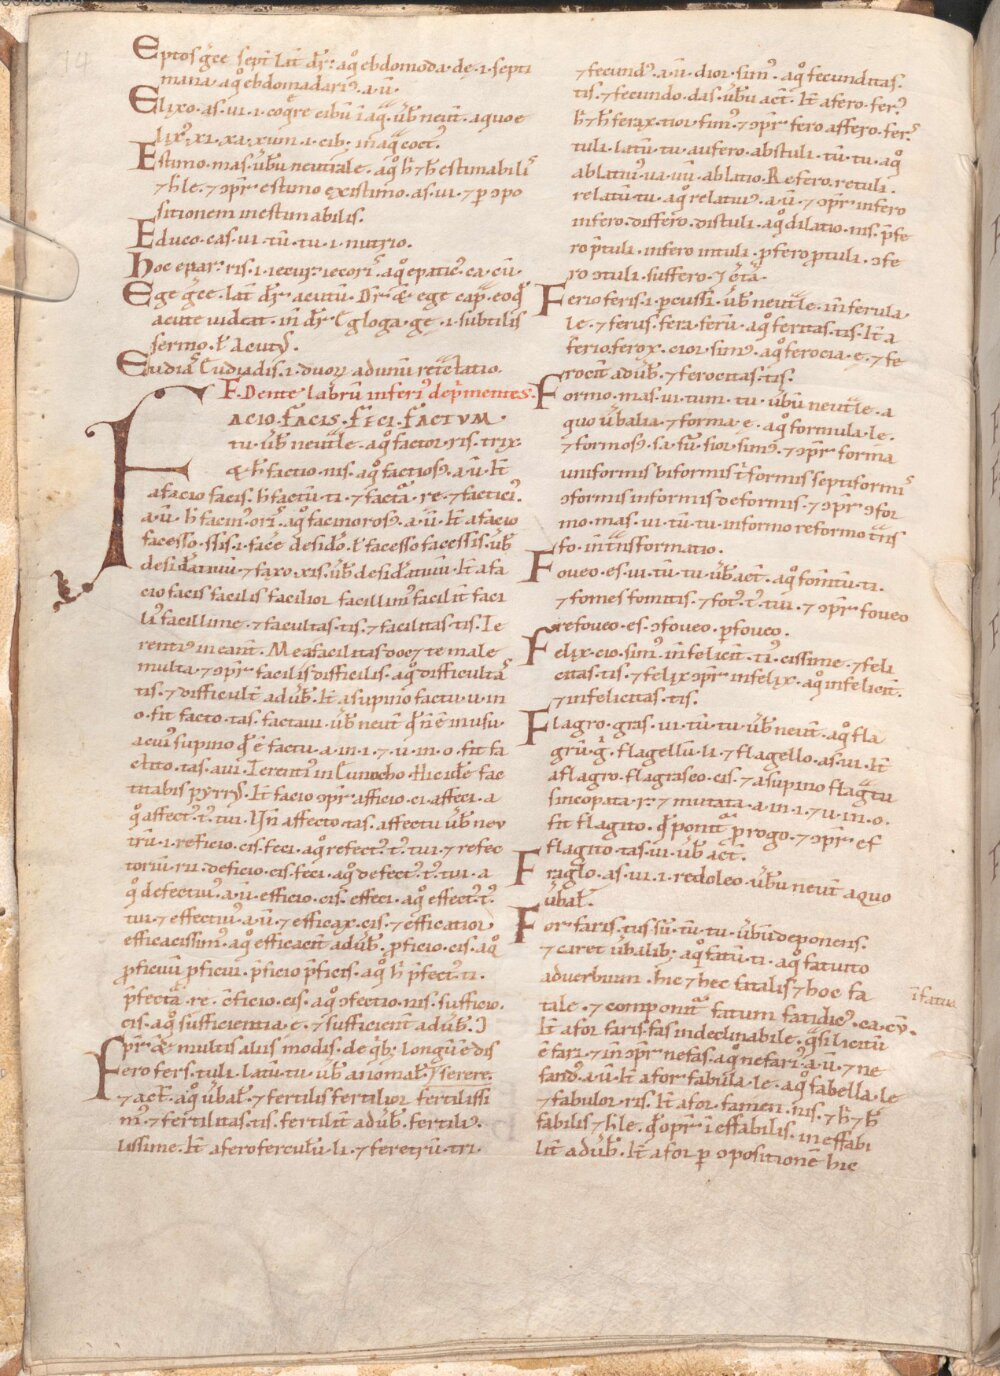 Eptos g̃ce septẽ lat̃ dr̃: aq̊ ebdomoda·de·i·septi
mana·aq̊ ebdomadari᷒·a·ũ·
Elixo·as·ui·i·coq̃re cibũ ĩ aq̃·ũb̃ neut̃·a quo e
lix᷒·xi·xa·xum·i·cib᷒ in aqua coct᷒·
Estimo·mas·ũbũ neutrale·aq̊ h̃ ⁊ h̃ estimabilis
⁊ h̃ le·⁊ ɔpr̃ estimo existimo·as·ui·⁊ p ɔpo
sitionem inestimabilis·
Educo·cas·ui·tũ·tu·i·nutrio·
Hoc epar·ris·i·iecur·iecoris·aq̊ epatic᷒·ca·cũ·
Ege g̃ce·lat̃ dr̃ acutũ·Dr̃ & ege cap̃·eoq̊
acute uideat·in dr̃ Egloga·ge·i·subtilis
sermo·ł acut᷒·
Eudia Eudiadis·i·duorȝ ad unũ reuelatio·
F· Dente labrũ inferi᷒ dep̃mentes·
FACIO·FACIS·FECI·FACTVM·
tu·ũb̃ neut̃le·aq̊ factor·ris·trix·
& h̃ factio·nis·aq̊ factios᷒·a·ũ·It̃
a facio facis·h̃ factũ·ti·⁊ factũra·re·⁊ factici᷒·
a·ũ·h̃ facin᷒·oris·aq̊ facinoros᷒·a·ũ·It̃ a facio
facesso·ssis·i·face desido·ł facesso facessis·ũb̃
desideratiuũ·⁊ faxo·xis·ũb̃ desideratiuũ·It̃ a fa
cio facis facilis facilior facillim᷒ facilit̃ faci
li᷒ facillime·⁊ facultas·tis·⁊ facilitas·tis·Te
renti᷒ in eaut̃·Mea facilitas docet te male
multa·⁊ ɔpr̃ facilis difficilis·aq̊ difficultas
tis·⁊ difficult̃ adũb̃·It̃ a supino factu·u·in
o·fit facto·tas·factaui·ũb̃ neut̃ q̊ ñ ẽ in usu·
a cui᷒ supino q̊ ẽ factu·a·in·i·⁊·u·in·o·fit fa
ctito·tas·aui·Terenti᷒ in Eunucho·Hic idẽ fac
titabis pyrr᷒·It̃ facio ɔpr̃ afficio·ci·affeci·a
q̊ affect᷒·t᷒·tui·Iñ affecto·tas·affectu ũb̃ neu
trũ·i·reficio·cis·feci·aq̊ refect᷒·t᷒·tui·⁊ refec
toriũ·rii·deficio·cis·feci·aq̊ defect᷒·t᷒·tui·a
q̊ defectiu᷒·a·ũ·efficio·cis·effeci·aq̊ effect᷒·t᷒·
tui·⁊ effectiu᷒·a·ũ·⁊ efficax·cis·⁊ efficatior
efficacissim᷒·aq̊ efficacit̃ adũb̃·p̃ficio·cis·aq̊
p̃ficuũ p̃ficui·p̃ficio p̃ficis·aq̊ h̃ p̃fect᷒·ti·
p̃fectura·re·ɔficio·cis·aq̊ ɔfectio·nis·sufficio·
cis·aq̊ sufficientia·e·⁊ sufficient̃ adũb̃·Ɔ
ɔpr̃ & multis aliis modis·de q̊b᷒ longũ ẽ dis
serere·
Fero fers·tuli·latũ·tu·ũb̃ anomał·
⁊ act̃·aq̊ ũbał·⁊ fertilis fertilior fertilissi
m᷒·⁊ fertilitas·tis·fertilit̃ adũb̃·fertili᷒·
lissime·It̃ a fero ferculũ·li·⁊ feretrũ·tri·
⁊ fecund᷒·a·ũ·dior·sim᷒·aq̊ fecunditas·
tis·⁊ fecundo·das·ũbũ act̃·It̃ a fero·fer᷒·
h̃ ⁊ h̃ ferax·tior sim᷒·⁊ ɔpr̃ fero affero·fers·
tuli·latũ·tu·aufero·abstuli·tũ·tu·aq̊
ablatiu᷒·ua·uũ·ablatio·Refero·retuli·
relatũ·tu·aq̊ relatiu᷒·a·ũ·⁊ ɔpr̃ infero
infero·differo·distuli·aq̊ dilatio·nis·p̃fe
ro p̃tuli·infero intuli·p̃fero p̃tuli·ɔfe
ro ɔtuli·suffero·⁊ cetã·
Ferio feris·i·pcussi·ũb̃ neut̃le·in ferula·
le·⁊ ferus·fera·ferũ·aq̊ feritas·tis·It̃ a
ferio·ferox·cior·sim᷒·aq̊ ferocia·e·⁊ fe
rocit̃ adũb̃·⁊ ferocitas·tis·
Formo·mas·ui·tum·tu·ũbũ neut̃le·a
quo ũbalia·⁊ forma·e·aq̊ formula·le·
⁊ formos᷒·sa·sũ·sior·sim᷒·⁊ ɔpr̃ forma
uniformis biformis t̃formis septiformis
ɔformis informis deformis·⁊ ɔpr̃ ɔfor
mo·mas·ui·tũ·tu·informo reformo trãs
fo·in trãsformatio·
Foueo·es·ui·tũ·tu·ũb̃ act̃·aq̊ fomtũ·ti·
⁊ fomes fomitis·⁊ fot᷒·t᷒·tui·⁊ ɔpr̃ foueo
refoueo·es·ɔfoueo·pfoueo·
Felix·cio·sim᷒·in felicit̃·ti᷒·cissime·⁊ feli
citas·tis·⁊ felix ɔpr̃ infelix·aq̊ infelicit̃·
⁊ infelicitas·tis·
Flagro·gras·ui·tũ·tu·ũb̃ neut̃·aq̊ fla
grũ·g̃·flagellũ·li·⁊ flagello·as·ui·It̃
a flagro·flagrasco·cis·⁊ a supino flagratu
sincopata·r·⁊ mutata·a·in·i·⁊·u·in·o·
fit flagito·q̊ ponit̃ p̃ rogo·⁊ ɔpr̃ ef
flagito·tas·ui·ũb̃ act̃·
Fraglo·as·ui·i·redoleo·ũbũ neut̃ a quo
ũbał·
For·faris·tus sũ·tũ·tu·ũbũ deponens·
⁊ caret ũbalib᷒·aq̊ fatũ·ti·aq̊ fatuito
aduerbium·hic ⁊ hec fatalis ⁊ hoc fa
tale·⁊ componit̃ fatum fatidic᷒·ca·cũ·
It̃ a for faris·fas indeclinabile·q̃si licitũ
ẽ fari·⁊ in ɔpr̃ nefas·aq̊ nefari᷒·a·ũ·⁊ ne
fand᷒·a·ũ·It̃ a for fabula·le·aq̊ fabella·le
⁊ fabulor·ris·It̃ a for famen·nis·⁊ h̃ ⁊ h̃
fabilis ⁊ h̃ le·q̊ ɔpr̃ ĩ effabilis·ineffabi
lit̃ adũb̃·It̃ a for p ɔpositionẽ hic
ĩ fatua